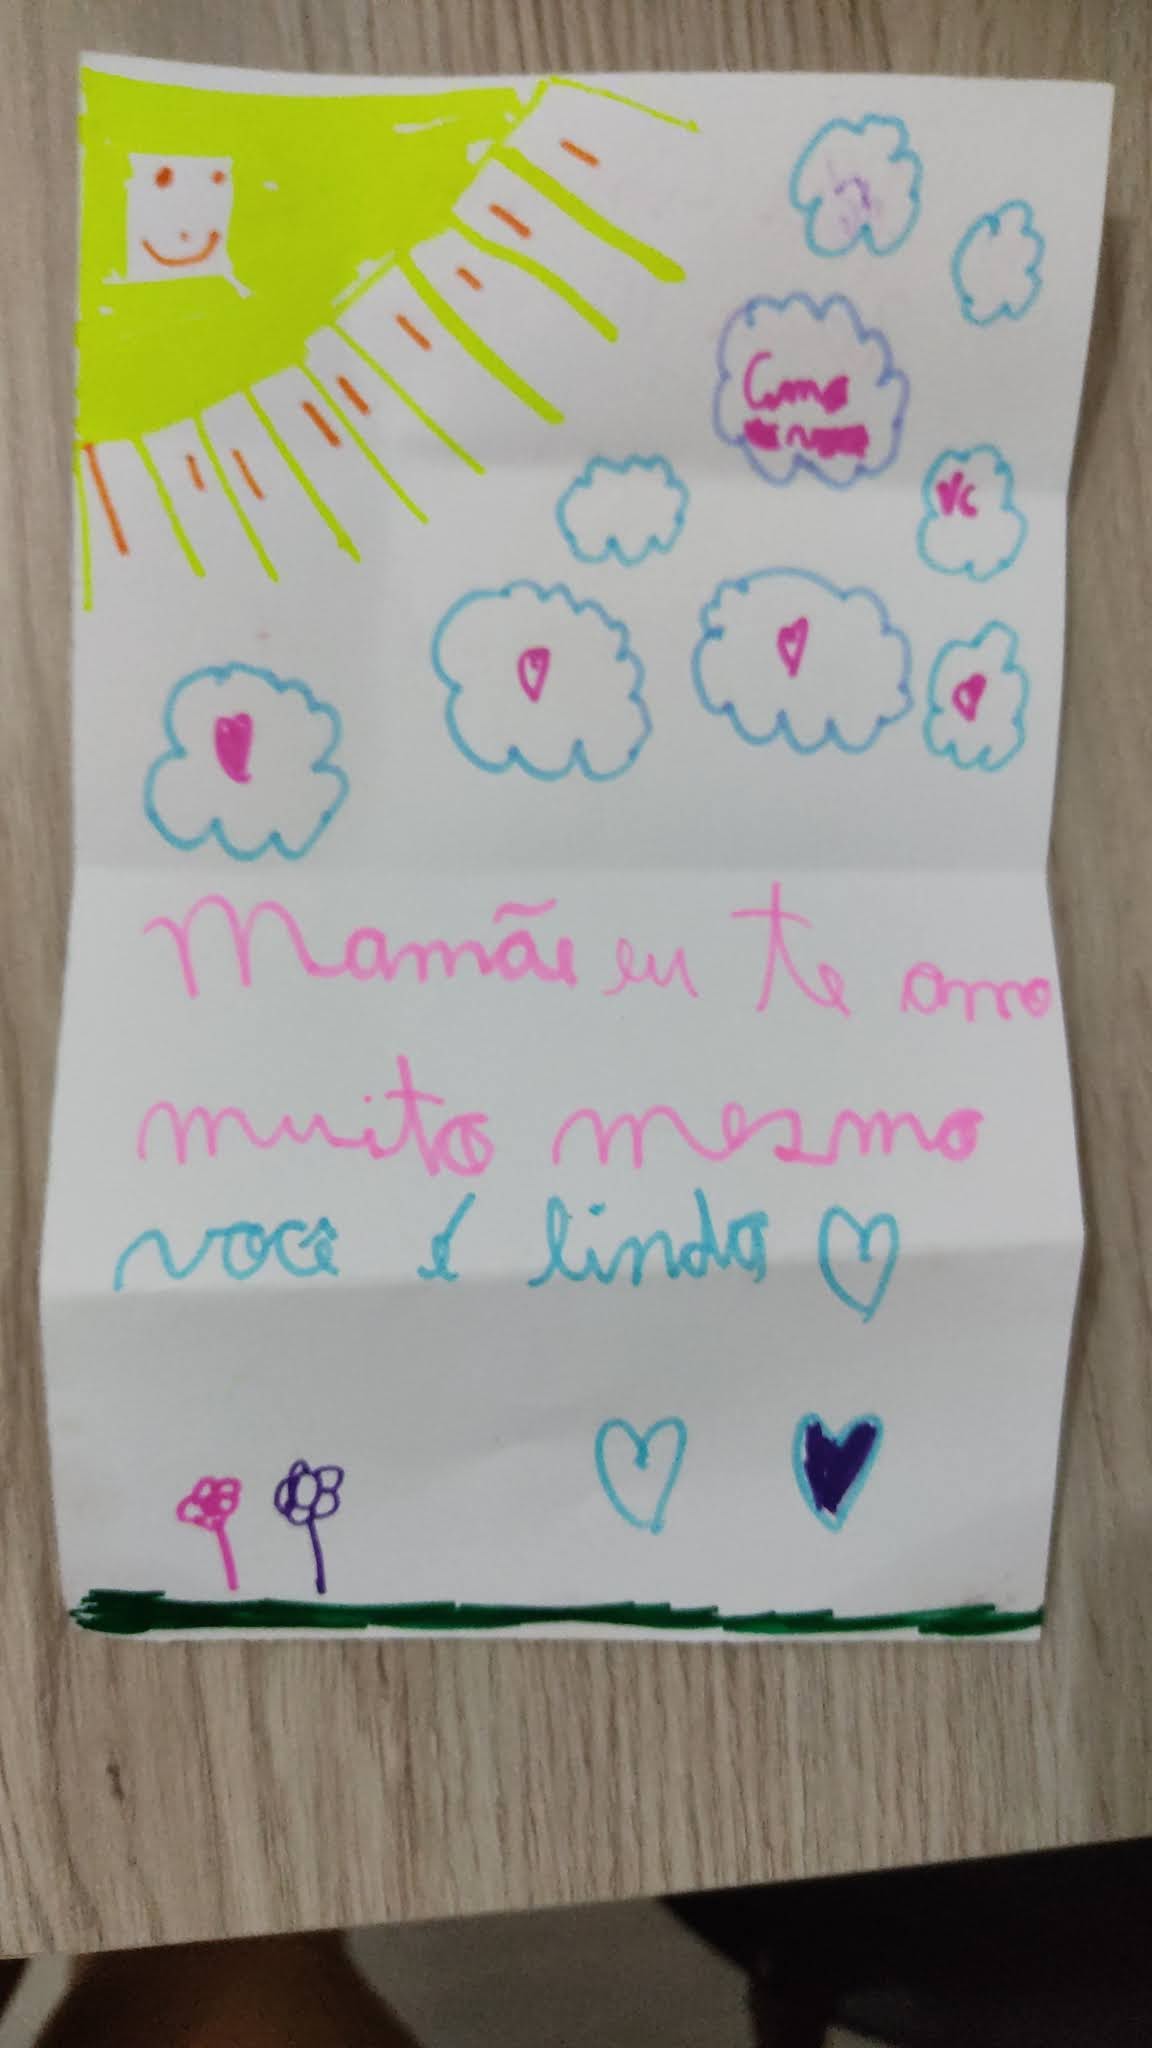 Como
Vc
Mamãe eu te amo
muito mesmo
você é linda